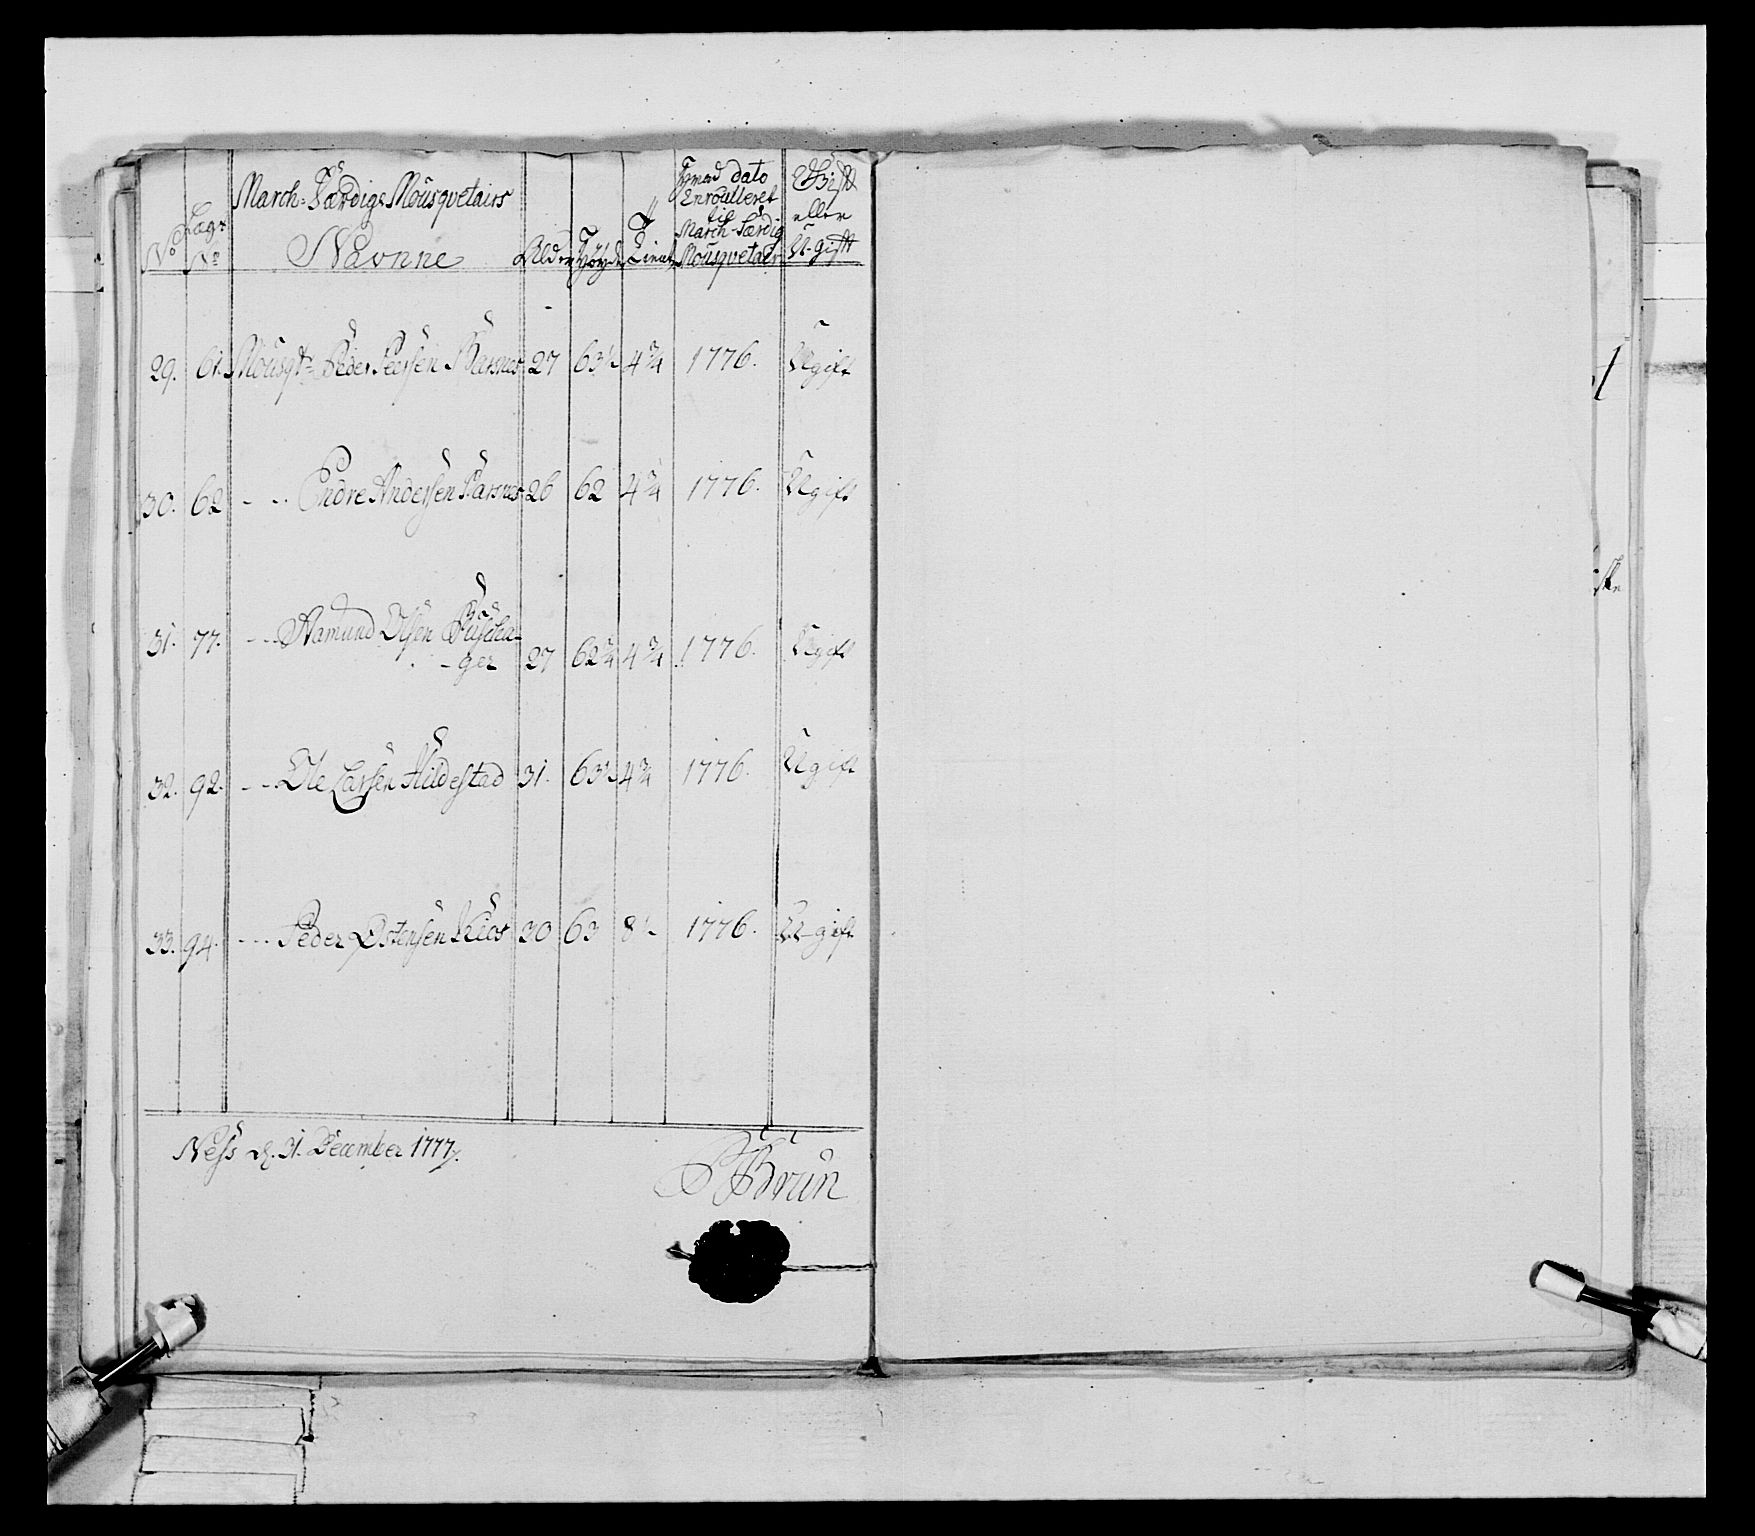 March-Færdige Mousqvetairs
Navnne
No
Lægs No
Alder
Høyde
T Tient
Hvad dato Enroulleret til March-Færdig Mousqvetair
Gift eller U-gift
29. 61. Mousqt: Peder Peersen 27 63½ 4¾ 1776. Ugift
30. 62 - - Endre Andersen 26 62 4¾ 1776. Ugift
31. 77. - - Aamund Olsen
-ger 27 62¾ 4¾ 1776. Ugift
32. 92. - - Ole Larsen Hildestad 31. 63½ 4¾ 1776. Ugift
33. 94. - - - Peder Østensen 30 63 8½ 1776. U-gift
Ness d. 31. December 1777.
Brun